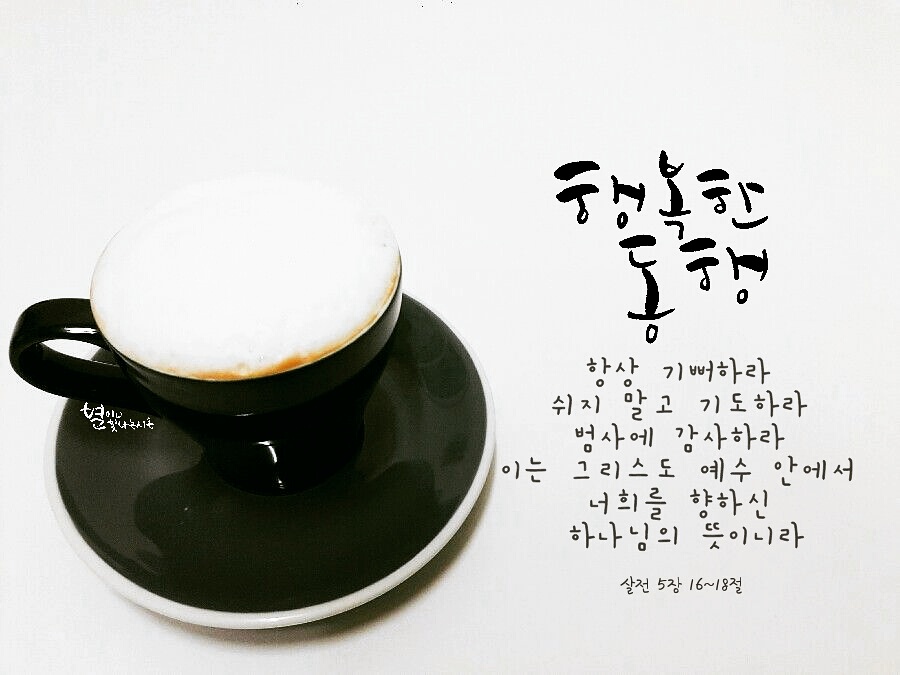 행복한
동행
항상 기뻐하라
쉬지 말고 기도하라
범사에 감사하라
이는 그리스도 예수 안에서
너희를 향하신
하나님의 뜻이니라
살전 5장 16~18절